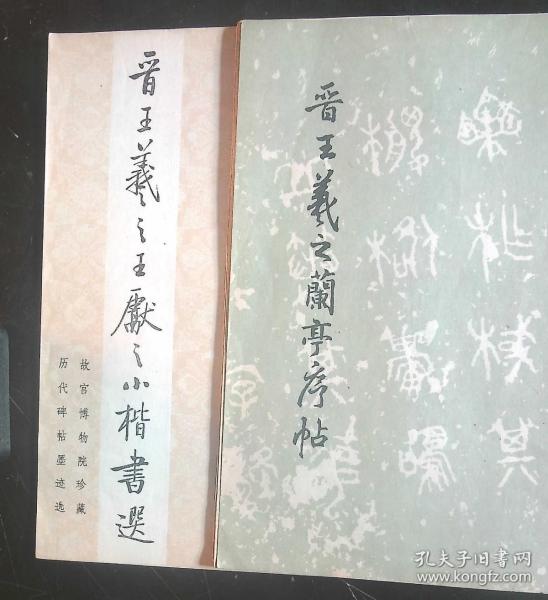 晋王羲之王獻之小楷書選
故宫博物院珍藏
历代碑帖墨迹选
晋王羲之蘭亭序帖
孔夫子旧书网
www.kongfz.com